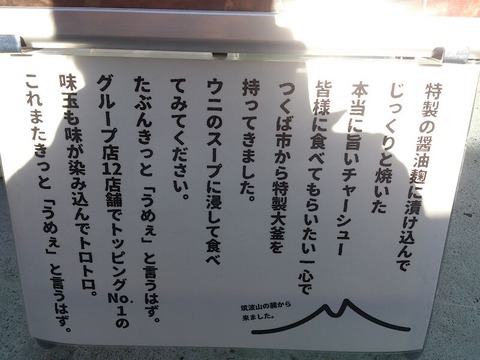 特製の醤油麹に漬け込んで
じっくりと焼いた
本当に旨いチャーシュー
皆様に食べてもらいたい一心で
つくば市から特製大釜を
持ってきました。
ウニのスープに浸して食べ
てみてください。
たぶんきっと「うめぇ」と言うはず。
グループ店12店舗でトッピングNo.1の
味玉も味が染み込んでトロトロ。
これまたきっと「うめぇ」と言うはず。
筑波山の麓から
来ました。